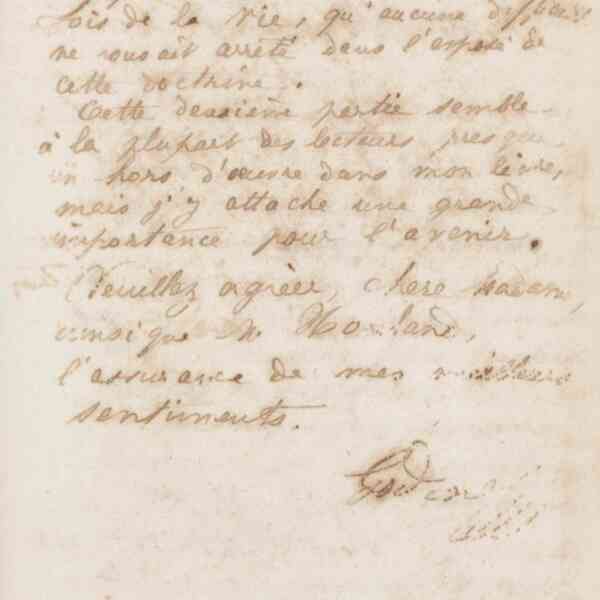 lois de la vie, qu'aucune
ne vous ait arrêté dans l'exposé de
cette doctrine.
Cette deuxième partie semble
à la plupart des lecteurs presque
un hors d'œuvre dans mon livre,
mais j'y attache une grande
importance pour l'avenir.
Veuillez agréer, chere Madame,
ainsi que M. Howland,
l'assurance de mes meilleurs
sentiments.
Godin